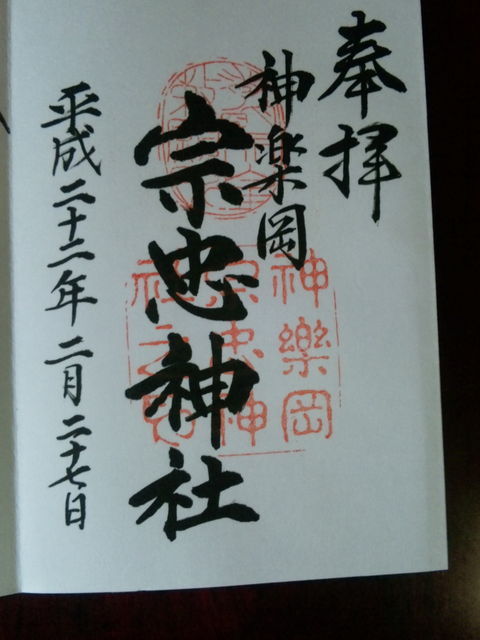 奉拝
神楽岡
宗忠神社
平成二十二年二月二十七日
神樂岡
宗忠神
社之印